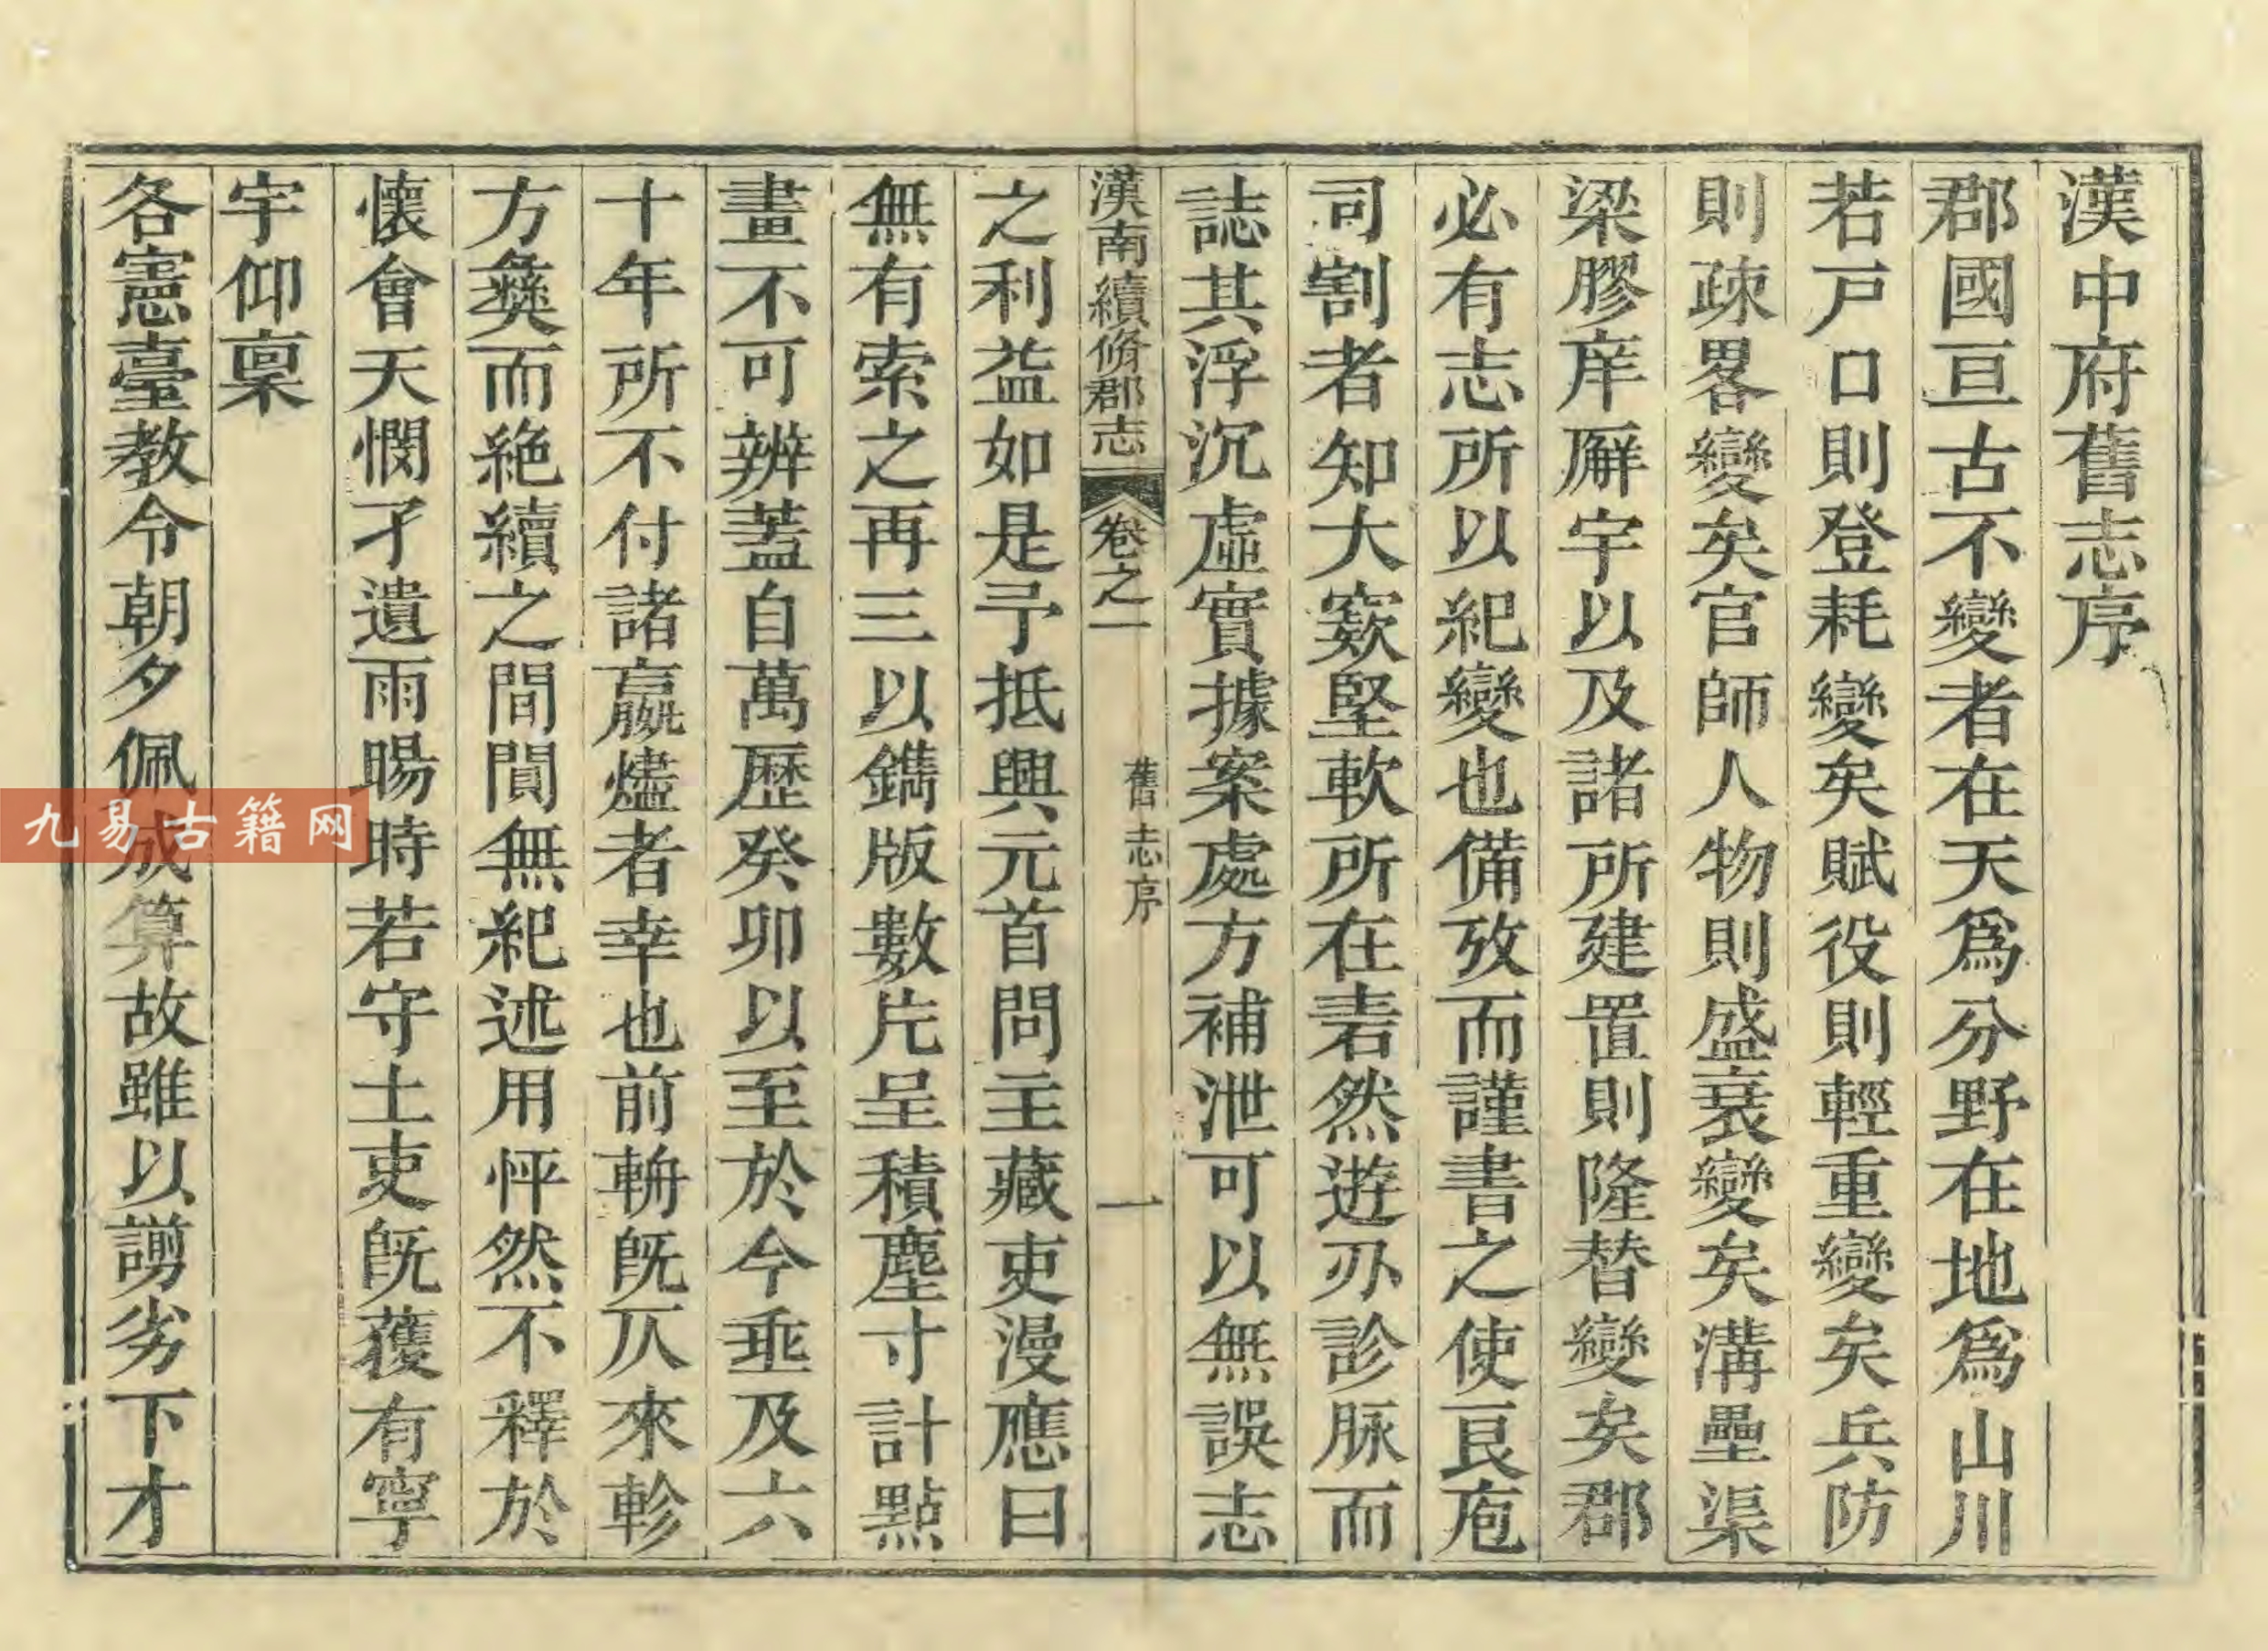 漢中府舊志序
郡國亘古不變者在天爲分野在地爲山川
若戸口則登耗變矣賦役則輕重變矣兵防
則疎畧變矣官師人物則盛衰變矣溝壘渠
梁膠庠廨宇以及諸所建置則隆替變矣郡
必有志所以紀變也備攷而謹書之使良庖
司割者知大窾堅軟所在砉然遊刃診脉而
誌其浮沉虛實據案處方補泄可以無誤志
漢南續脩郡志 卷之一 舊志序 一
之利益如是予抵興元首問主藏吏漫應曰
無有索之再三以鐫版數片呈積塵寸計點
畫不可辨蓋自萬歷癸卯以至於今垂及六
十年所不付諸嬴燼者幸也前輈旣仄來軫
方彝而絶續之間閴無紀述用怦然不釋於
懷會天憫孑遺雨暘時若守土吏旣獲有寧
宇仰稟
各憲臺教令朝夕佩成算故雖以謭劣下才
九易古籍网